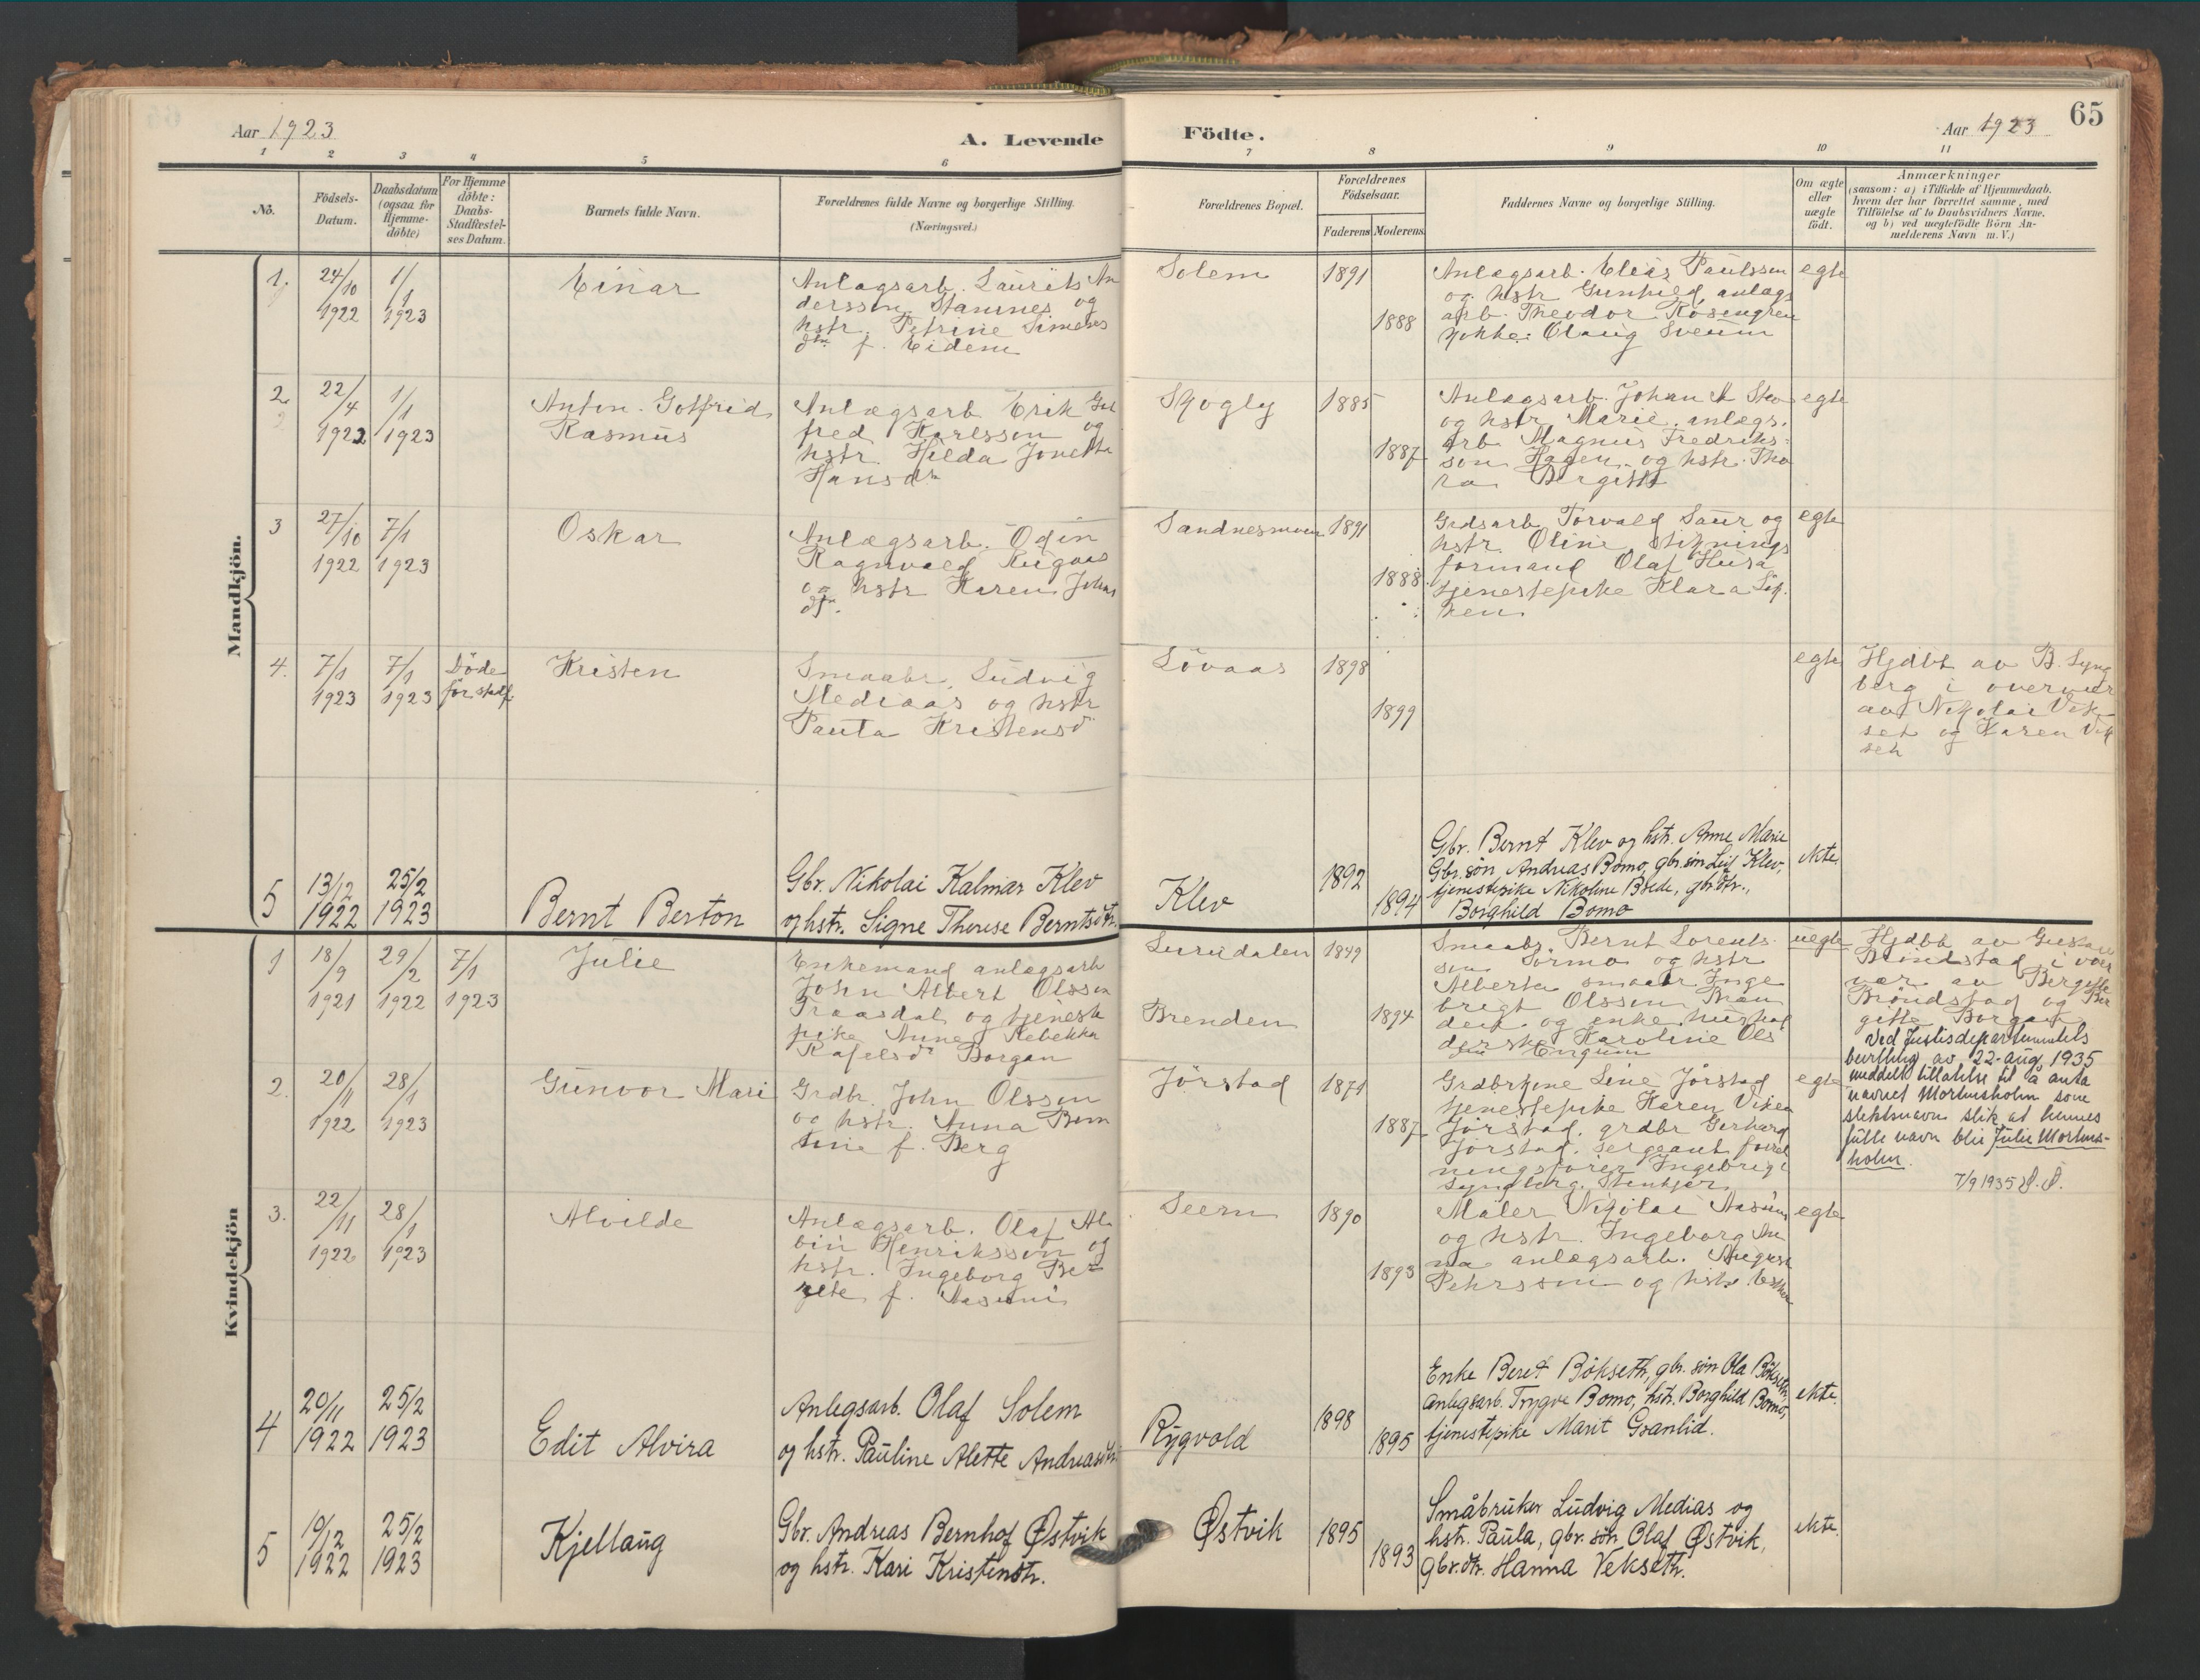 65
Aar 1923
A. Levende Födte.
Aar 1923
1 2 3 4 5 6 7 8 9 10 11
No.
Födsels-
Datum.
Daabsdatum
(ogsaa for
Hjemme-
döbte)
For Hjemme
döbte:
Daabs-
Stadfæstel-
ses Datum.
Barnets fulde Navn.
Forældrenes fulde Navne og borgerlige Stilling.
(Næringsvei.)
Forældrenes Bopæl.
Forældrenes
Födselsaar.
Faderens Moderens
Faddernes Navne og borgerlige Stilling.
Om ægte
eller
uægte
födt.
Anmærkninger
(saasom: a) i Tilfælde af Hjemmedaab,
hvem der har forrettet samme, med
Tilföielse af to Daabsvidners Navne,
og b) ved uægtefödte Börn An-
melderens Navn m. V.)
Mandkjön.
1.
24/10
1922
1/1
1923
Einar
Anlægsarb. Laurits An
dersson Stamnes og
hstr. Petrine Simens
dtr f. Eidem
Solem
1891
1888
Anlægsarb. Elias Paulssen
og hstr Gunhild, anlægs
arb. Theodor Rosengren
pike: Olaug Sveum
egte
2.
22/4
1922
1/1
1923
Anton Gotfrid
Rasmus
Anlægsarb Erik
fred Karlsson og
hstr. Hilda Jonette
Hansdr
Skogly
1885
1887
Anlægsarb. Johan
og hstr Marie, anlægs.
arb Magnus Fredriks-
son Hagen og hstr. Tho
ra Bergitte
egte
3
27/10
1922
7/1
1923
Oskar
Anlægsarb. Odin
Ragnvald
og hstr Karen Johns
dtr.
Sandnesmoen
1891
1888
Grdsarb Torvald Saur og
hstr. Oline, stiknings
formand Olaf Husa
tjenestepike Klara
egte
4.
7/1
1923
7/1
1923
Döde
för stadf.
Kristen
Smaabr. Ludvig
Mediaas og hstr
Paula Kristensdr
Lövaas
1898
1899
egte
Hjdbt av B. Lyng
berg i overvær
av Nikolai Vek
set og Karen Vek
set
5
13/12
1922
25/2
1923
Bernt Berton
Gbr. Nikolai Kalmar Klev
og hstr. Signe Therese Berntsdtr.
Klev
1892
1894
Gbr. Bernt Klev og hstr. Anne Marie
Gbr. søn Andreas Bomo, gbr. søn Leif Klev,
tjenestepike Nikoline Brede, gbr.dtr.,
Borghild Bomo
ekte.
Kvindekjön
1
18/9
1921
29/2
1922
7/1
1923
Julie
Enkemand anlægsarb
John Albert Olsson
Traasdal og tjeneste
pike Anne Rebekka
Rafelsdr Borgan
Lurudalen
Brenden
1849
1894
Smaabr. Bernt Lorents
sen Sörmo og hstr
Alberta smaabr Inge
brigt Olsson Bran
den og enke,
Karoline Ols
uegte
Hjdbt av Gustav
Bröndstad i over
vær av Bergitte
Bröndstad og Ber
gitte Borgan
Ved Justisdepartementets
bevilling av 22-aug. 1935
meddelt tillatelse til å anta
navnet Mortensholm som
slektsnavn slik at hennes
fulle navn blir Julie Mortens-
holm.
7/9 1935
2.
20/11
1922
28/1
1923
Gunvor Mari
Grdbr. John Olsson
og hstr. Anna Bern
tine f. Berg
Jörstad
1874
1887
Grdbrkone Line Jörstad
tjenestepike Karen Viken
Jörstad, grdbr Gerhard
Jörstad, sergeant
Ingebrigt
Lyngberg, Stenkjær
egte
3.
22/11
1922
28/1
1923
Alvilde
Anlægsarb. Olaf Al
bin Henriksson og
hstr. Ingeborg Be-
rete f. Aasum
Seem
1890
1893
Maler Nikolai Aasum
og hstr. Ingeborg An
na anlægsarb. August
Pehrsson og hstr
egte
4
20/11
1922
25/2
1923
Edit Alvira
Anlegsarb. Olaf Solem
og hstr. Pauline Alette Andreasdtr.
Rygvold
1898
1895
Enke Beret Bökseth, gbr. søn Ola Bökseth,
anlegsarb. Trygve Bomo, hstr. Borghild Bomo,
tjenestepike Marit Granlid.
ekte.
5
19/12
1922
25/2
1923
Kjellaug
Gbr. Andreas Bernhof Østvik
og hstr. Kari Kristendtr.
Østvik
1895
1893
Småbruker Ludvig Medias og
hstr. Paula, gbr. søn Olaf Østvik,
gbr.dtr. Hanna Vekseth.
ekte.